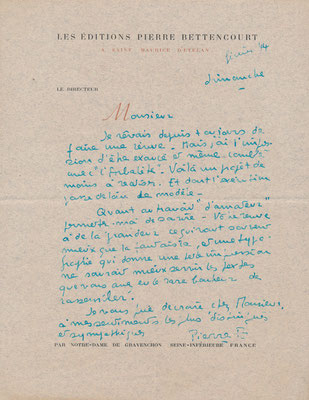 LES ÉDITIONS PIERRE BETTENCOURT
A SAINT MAURICE D'ETELAN
dimanche
LE DIRECTEUR
Monsieur
Je rêvais depuis toujours de
faire une revue. Mais j'ai l'impres
sion d'être exaucé et même comblé
avec l'Arbalète. Voilà un projet de
moins à réaliser. Et dont l'exécution
de modèle.
Quant au travail d'amateur
permettez-moi de sourire. Votre revue
a de la grandeur ce qui vaut souvent
mieux que la fantaisie, et une typo-
graphie qui donne une telle impression
ne saurait mieux servir les textes
que vous avez eu le rare bonheur de
rassembler.
Je vous prie de croire cher Monsieur,
à mes sentiments les plus distingués
et sympathiques
Pierre
PAR NOTRE-DAME DE GRAVENCHON SEINE-INFÉRIEURE FRANCE